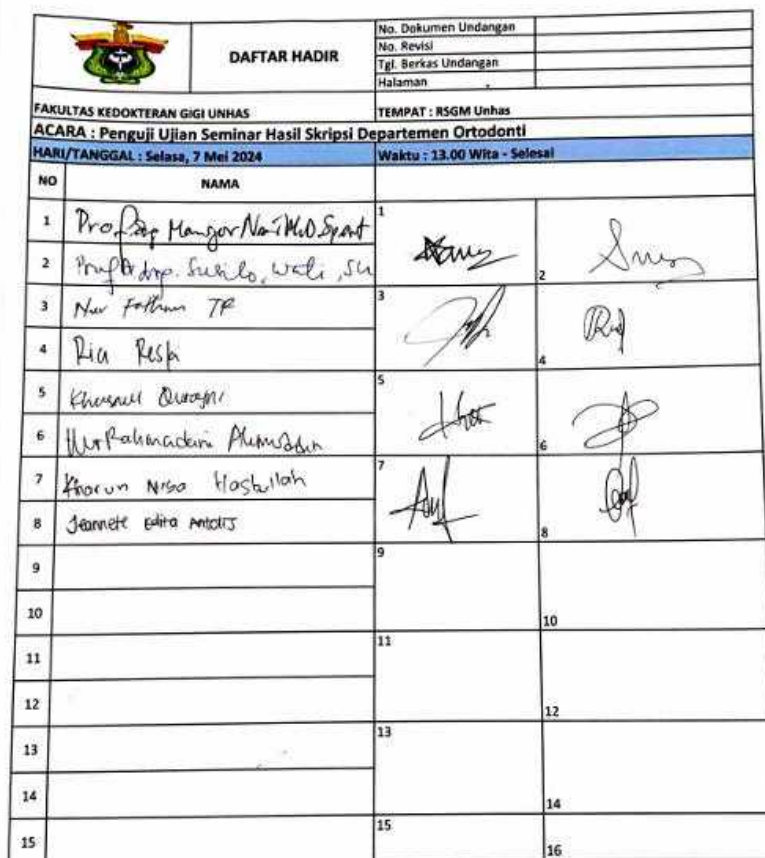 DAFTAR HADIR
No. Dokumen Undangan
No. Revisi
Tgl. Berkas Undangan
Halaman
FAKULTAS KEDOKTERAN GIGI UNHAS
TEMPAT : RSGM Unhas
ACARA : Penguji Ujian Seminar Hasil Skripsi Departemen Ortodonti
HARI/TANGGAL : Selasa, 7 Mei 2024
Waktu : 13.00 Wita - Selesai
NO NAMA
1 Prof. drg. Mansjur
1
2 Prof. drg. Susilo
2
3 Nur TR
3
4 Ria
4
5
5
6 Nur Rahmadani
6
7 Nisa Hasbullah
7
8 Jeannete Edita Antolis
8
9
9
10
10
11
11
12
12
13
13
14
14
15
15
16